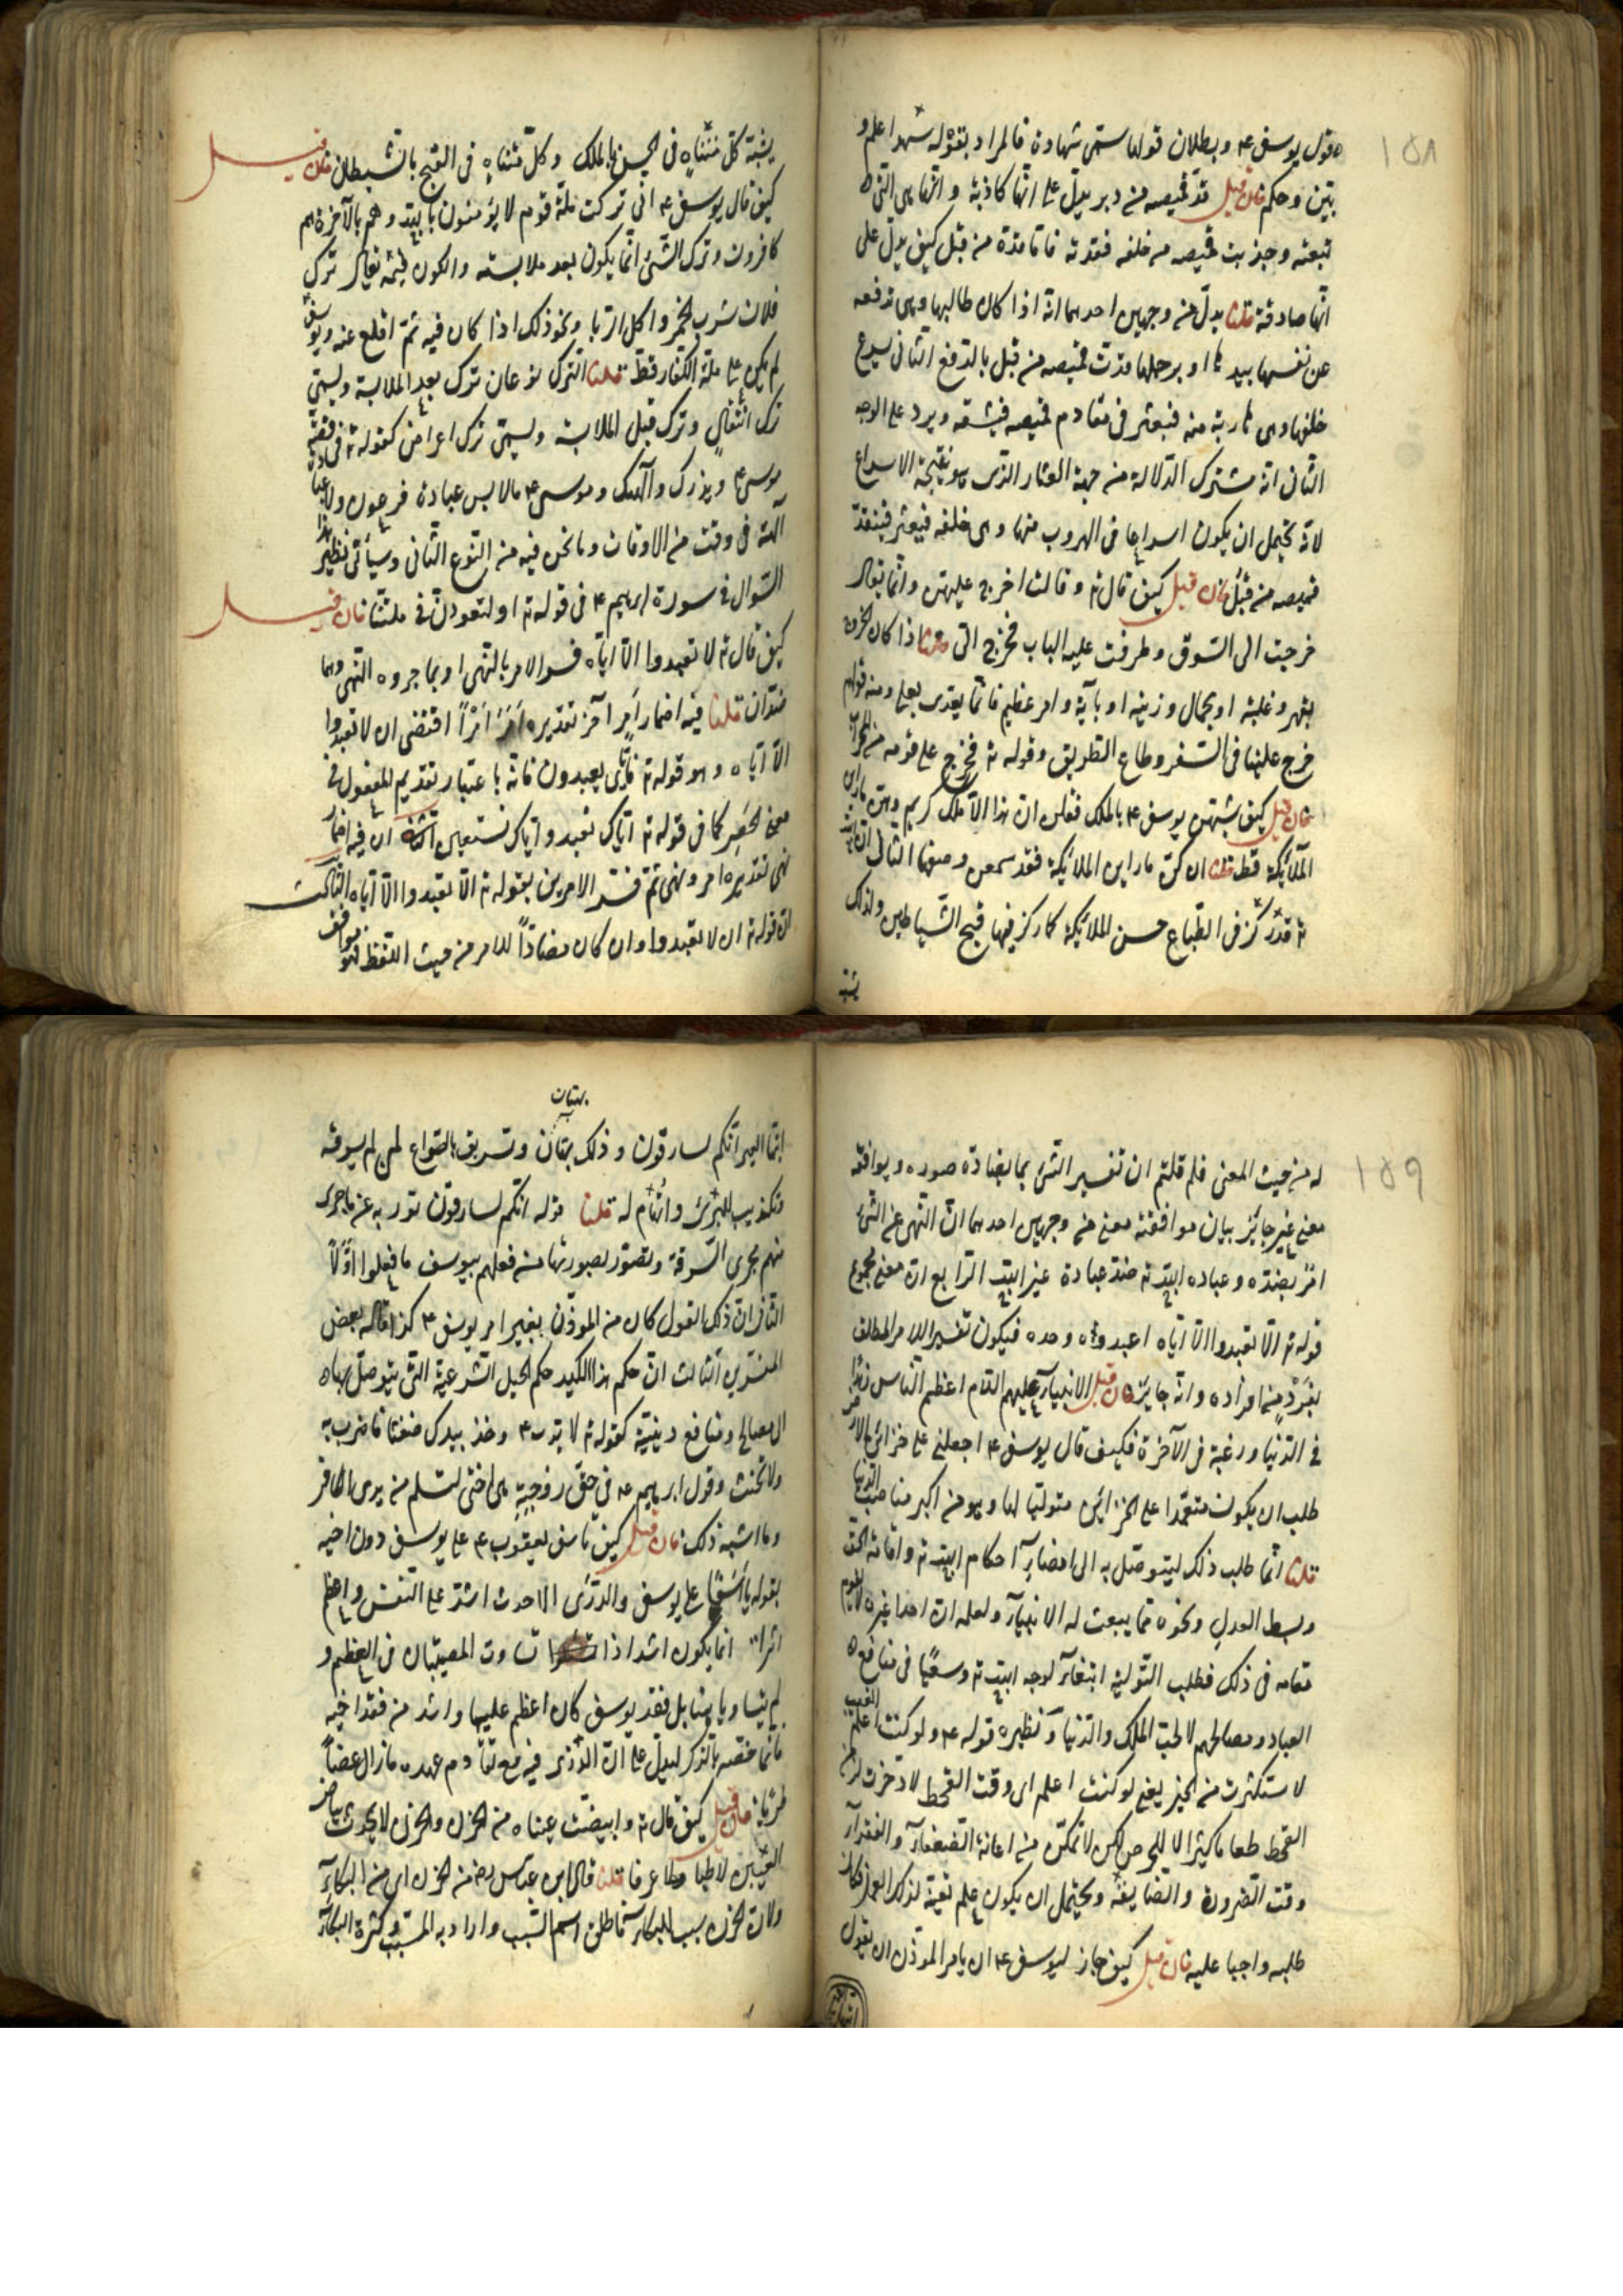 ١٥٨
ه قول يوسف ع م وبطلان قولها سمى شهادة فالمراد بقوله شهد اعلم و
بين وحكم فان قيل قد قميصه من دبر يدل على انها كاذبة وانها هى التى
تبعته وجذبت قميصه من خلفه فقدته فاما قده من قبل كيف يدل على
انها صادقة قلنا يدل من وجهين احدهما انه اذا كان طالبها وهى تدفعه
عن نفسها بيدها او برجلها قدت قميصه من قبل بالدفع الثانى يسرع
خلفها وهى هاربة منه فيعثر فى مقادم قميصه فيشقه ويرد على الوجه
الثانى انه مشترك الدلالة من جهة العثار الذى هو نتيجة الاسراع
لانه يحتمل ان يكون اسراعا فى الهروب منها وهى خلفه فيعثر فينقد
قميصه من قبل فان قيل كيف قال ته وقالت اخرج عليهن وانما يقال
خرجت الى السوق وطرقت عليه الباب فخرج الى قلنا اذا كان الخروج
بقهر وغلبة او بجمال وزينة او بآية وامر عظيم فانما يعدى بعلى ومنه قولهم
خرج علينا فى السفر وقطاع الطريق وقوله ته فخرج على قومه من المحراب
فان قيل كيف شبهن يوسف ع م بالملك فقلن ان هذا الا ملك كريم وهن ما راين
الملائكة قط قلنا ان كن ما راين الملائكة فقد سمعن وصفها الثانى ان الله
ته قد ركز فى الطباع حسن الملائكة كما ركز فيها قبح الشياطين ولذلك
يشبه كل متناه فى الحسن بالملك وكل متناه فى القبح بالشيطان فان قيل
كيف قال يوسف ع م انى تركت ملة قوم لا يؤمنون بالله وهم بالآخرة هم
كافرون وترك الشئ انما يكون بعد ملابسته والكون فيه يقال ترك
فلان شرب الخمر واكل الربا ونحو ذلك اذا كان فيه ثم اقلع عنه ويوسف
لم يكن على ملة الكفار قط قلنا الترك نوعان ترك بعد الملابسة ويسمى
ترك انتقال وترك قبل الملابسة ويسمى ترك اعراض كقوله ته فى قصة
موسى ع م ويذرك وآلهتك وموسى ع م ما لابس عبادة فرعون ولا عبادة
آلهته فى وقت من الاوقات وما نحن فيه من النوع الثانى وسيأتى نظير هذا
السوال فى سورة ابرهيم ع م فى قوله ته او لتعودن فى ملتنا فان قيل
كيف قال ته لا تعبدوا الا اياه فسر الامر بالنهى او بما جروه النهى وهما
ضدان قلنا فيه اضمار امر آخر تقديره امر امرا اقتضى ان لا تعبدوا
الا اياه وهو قوله ته فاياى يعبدون فانه باعتبار تقديم المفعول فى
معنى الحصر كما فى قوله ته اياك نعبد واياك نستعين الثانى ان فيه اضمار
نهى تقديره امر ونهى ثم فسر الامرين بقوله ته الا تعبدوا الا اياه الثالث
ان قوله ته ان لا تعبدوا وان كان مضادا للامر من حيث اللفظ فهو موافق
١٥٩
له من حيث المعنى فلم قلتم ان تفسير الشئ بما يضاده صورة ويوافقه
معنى غير جائز بيان موافقته معنى من وجهين احدهما ان النهى عن الشئ
امر بضده وعبادة الله ته ضد عبادة غير الله الرابع ان معنى مجموع
قوله ته الا تعبدوا الا اياه اعبدوه وحده فيكون تفسير الامر المطلق
بفرد من افراده وانه جايز فان قيل الانبيآء عليهم السلام اعظم الناس زهدا
فى الدنيا ورغبة فى الآخرة فكيف قال يوسف ع م اجعلنى على خزائن الارض
طلب ان يكون معتمدا على الخزائن متوليا لها وهو من اكبر مناصب الدنيا
قلنا انما طلب ذلك ليتوصل به الى امضاء احكام الله ته واقامة الحق
وبسط العدل ونحوه مما يبعث له الانبيآء ولعلمه ان احدا غيره لا يقوم
مقامه فى ذلك فطلب التولية ابتغآء لوجه الله ته وسعيا فى منافع
العباد ومصالحهم لا لحب الملك والدنيا ونظيره قوله ع م ولو كنت اعلم الغيب
لاستكثرت من الخير يعنى لو كنت اعلم اى وقت القحط لادخرت لزمن
القحط طعاما كثيرا لا للحرص لكن لاتمكن من اعانة الضعفآء والفقرآء
وقت الضرورة والضايقة ويحتمل ان يكون علم تعينه لذلك العمل فكان
طلبه واجبا عليه فان قيل كيف جاز ليوسف ع م ان يامر الموذن ان يقول
بهتان
ايتها العير انكم لسارقون وذلك بهتان وتسريق بالصواع لمن لم يسرقه
وتكذيب للبرئ واتهام له قلنا قوله انكم لسارقون تورية عن ما جرى
منهم مجرى السرقة وتصور بصورتها من فعلهم بيوسف ما فعلوا اولا
الثانى ان ذلك القول كان من الموذن بغير امر يوسف ع م كذا قاله بعض
المفسرين الثالث ان حكم هذا الكيد حكم الحيل الشرعية التى يتوصل بها
الى مصالح ومنافع دينية كقوله ته لايوب ع م وخذ بيدك ضغثا فاضرب به
ولا تحنث وقول ابرهيم ع م فى حق زوجته هى اختى لتسلم من يدى الكافر
وما اشبه ذلك فان قيل كيف تاسف يعقوب ع م على يوسف دون اخيه
بقوله يا اسفا على يوسف والرزء الاحدث اشد على النفس واعظم
اثرا قلنا انما يكون اشد اذا تساوت المصيبتان فى العظم و
لم يتساويا هنا بل فقد يوسف كان اعظم عليه واشد من فقد اخيه
فانما خصه بالذكر ليدل على ان الرزء فيه مع تقادم عهده ما زال غضا
طريا فان قيل كيف قال ته وابيضت عيناه من الحزن والحزن لا يحدث بياض
العينين لا طبا ولا عرفا قلنا قال ابن عباس رض من الحزن اى من البكآء
ولان الحزن سبب البكاء فاطلق اسم السبب واراد به المسبب وكثرة البكآء